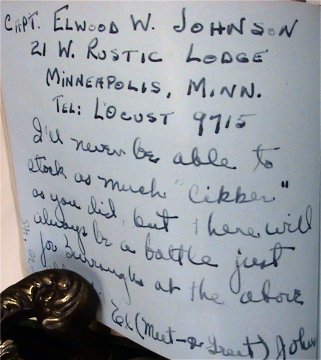 CAPT. ELWOOD W. JOHNSON
21 W. RUSTIC LODGE
MINNEAPOLIS, MINN.
TEL: LOCUST 9715
I'll never be able to
stock as much "likker"
as you did, but there will
always be a battle just
for Burroughs at the above
El (Meet-&-Treat) John